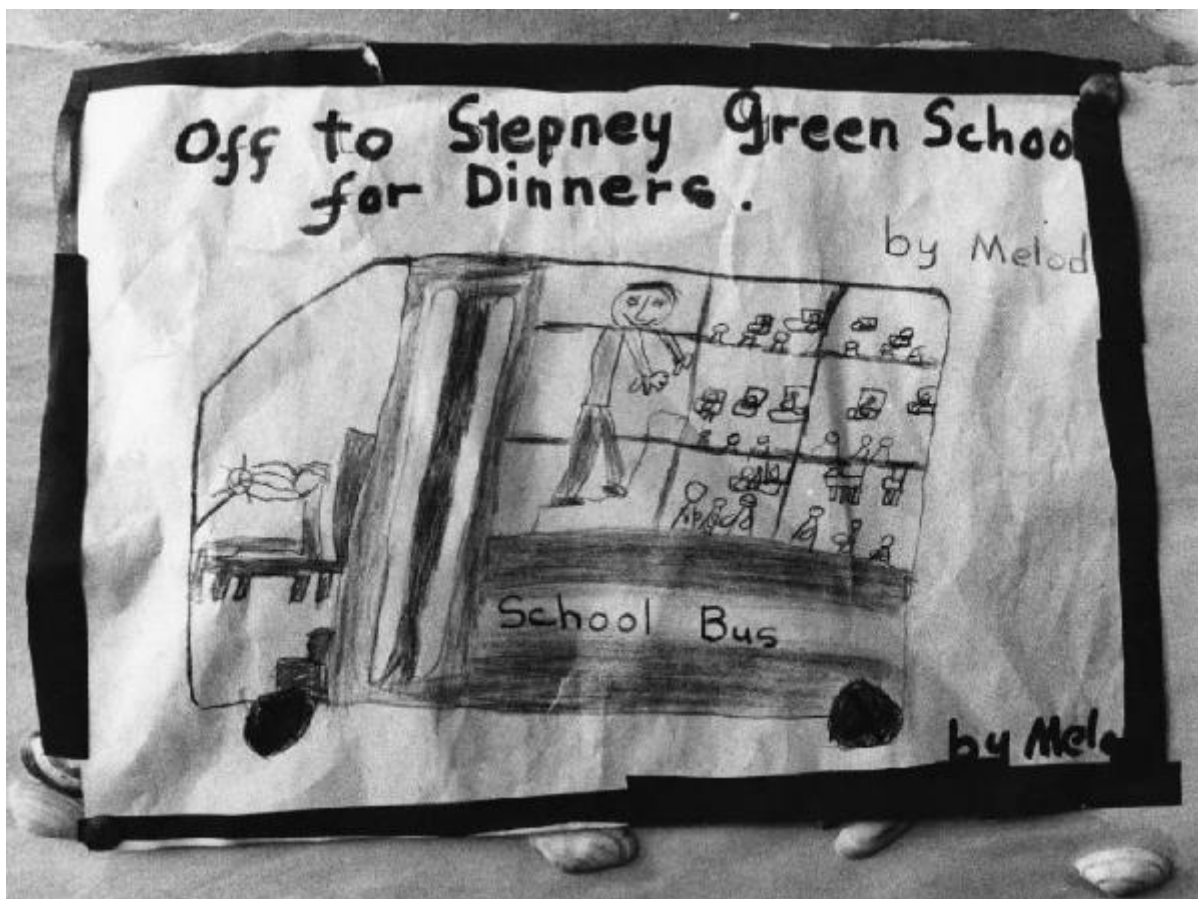 Off to Stepney Green Schoo
for Dinners.
by Melod
School Bus
by Melo